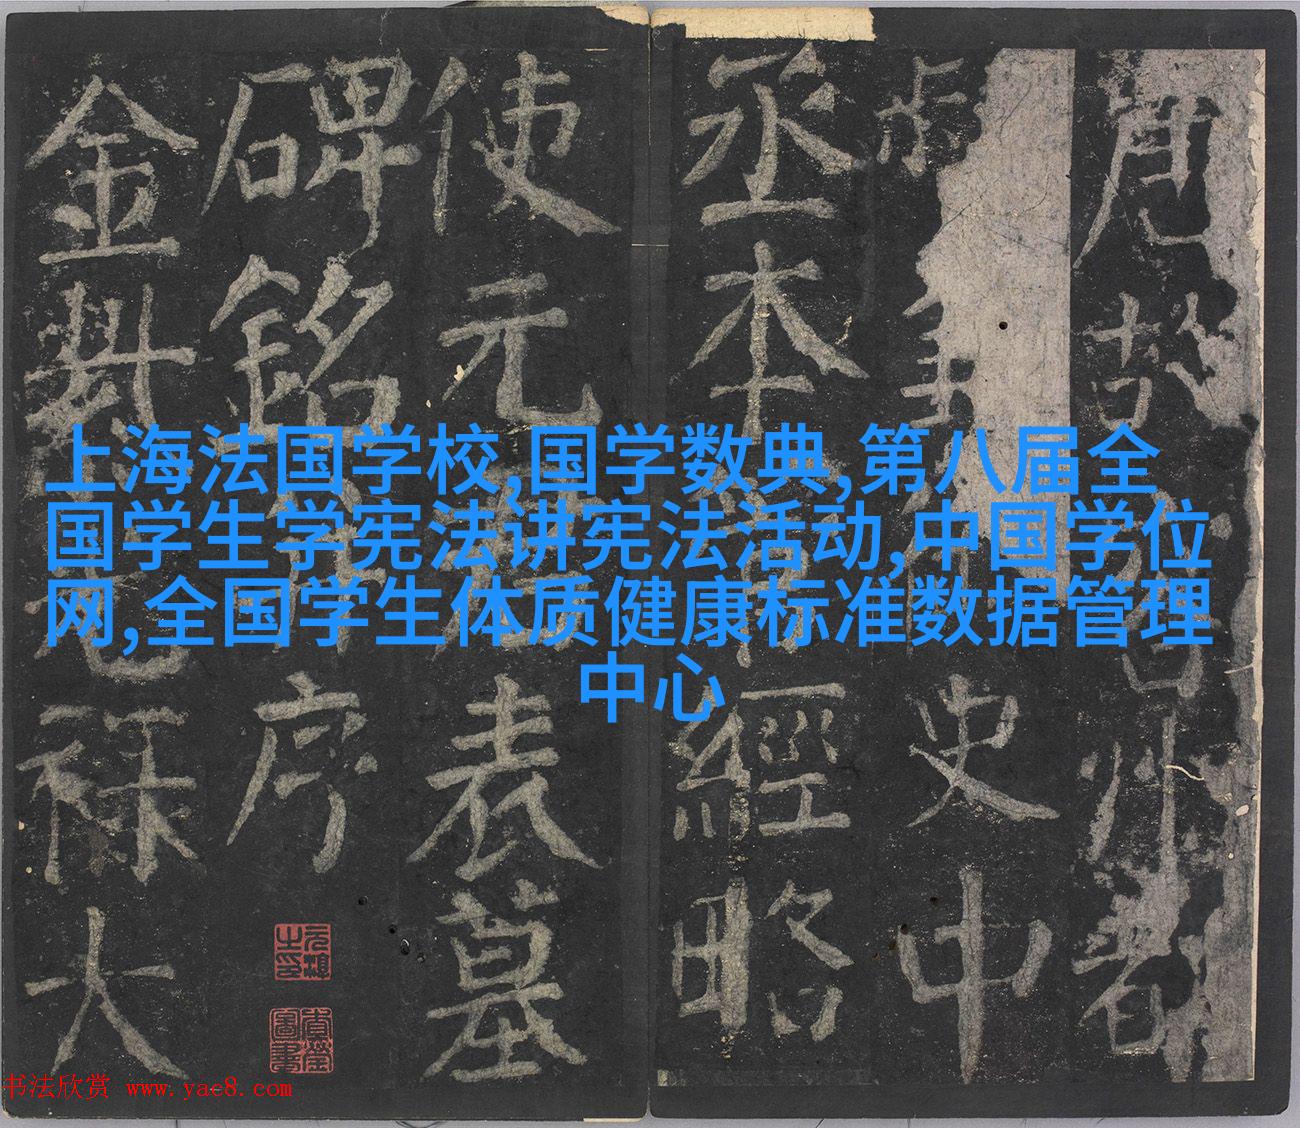 上海法国学校,国学数典,第八届全
国学生学宪法讲宪法活动,中国学位
网,全国学生体质健康标准数据管理
中心
唐故州都
史中
丞本經略
使元表墓
碑銘序
金紫光祿大
书法欣赏 www.yac8.com